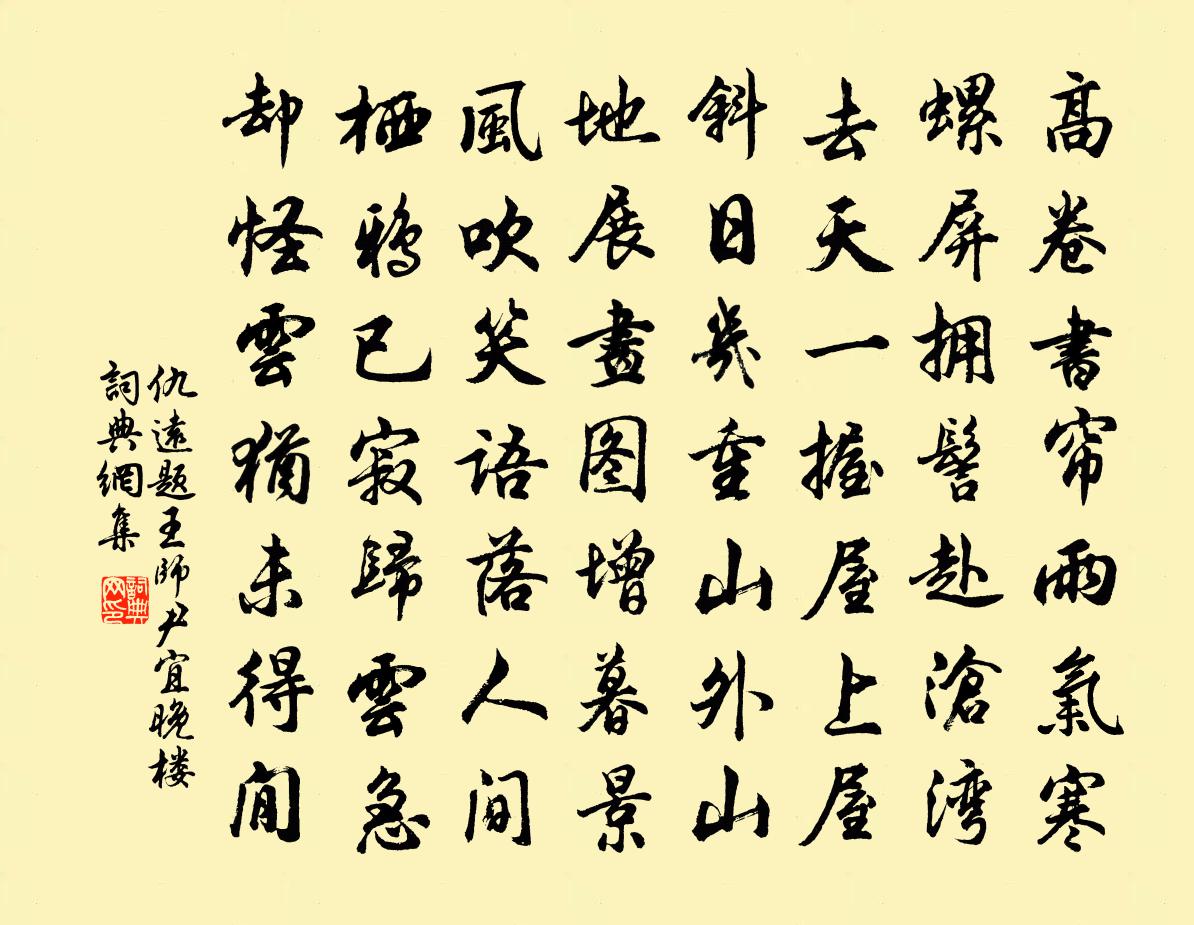 高卷書帘雨氣寒
螺屏拥髻赴滄湾
去天一握屋上屋
斜日幾重山外山
地展畫图增暮景
風吹笑语落人间
栖鴉已寂歸雲急
却怪雲猶未得閒
仇遠题王師尹宜晚楼
詞典網集
詞典
网印